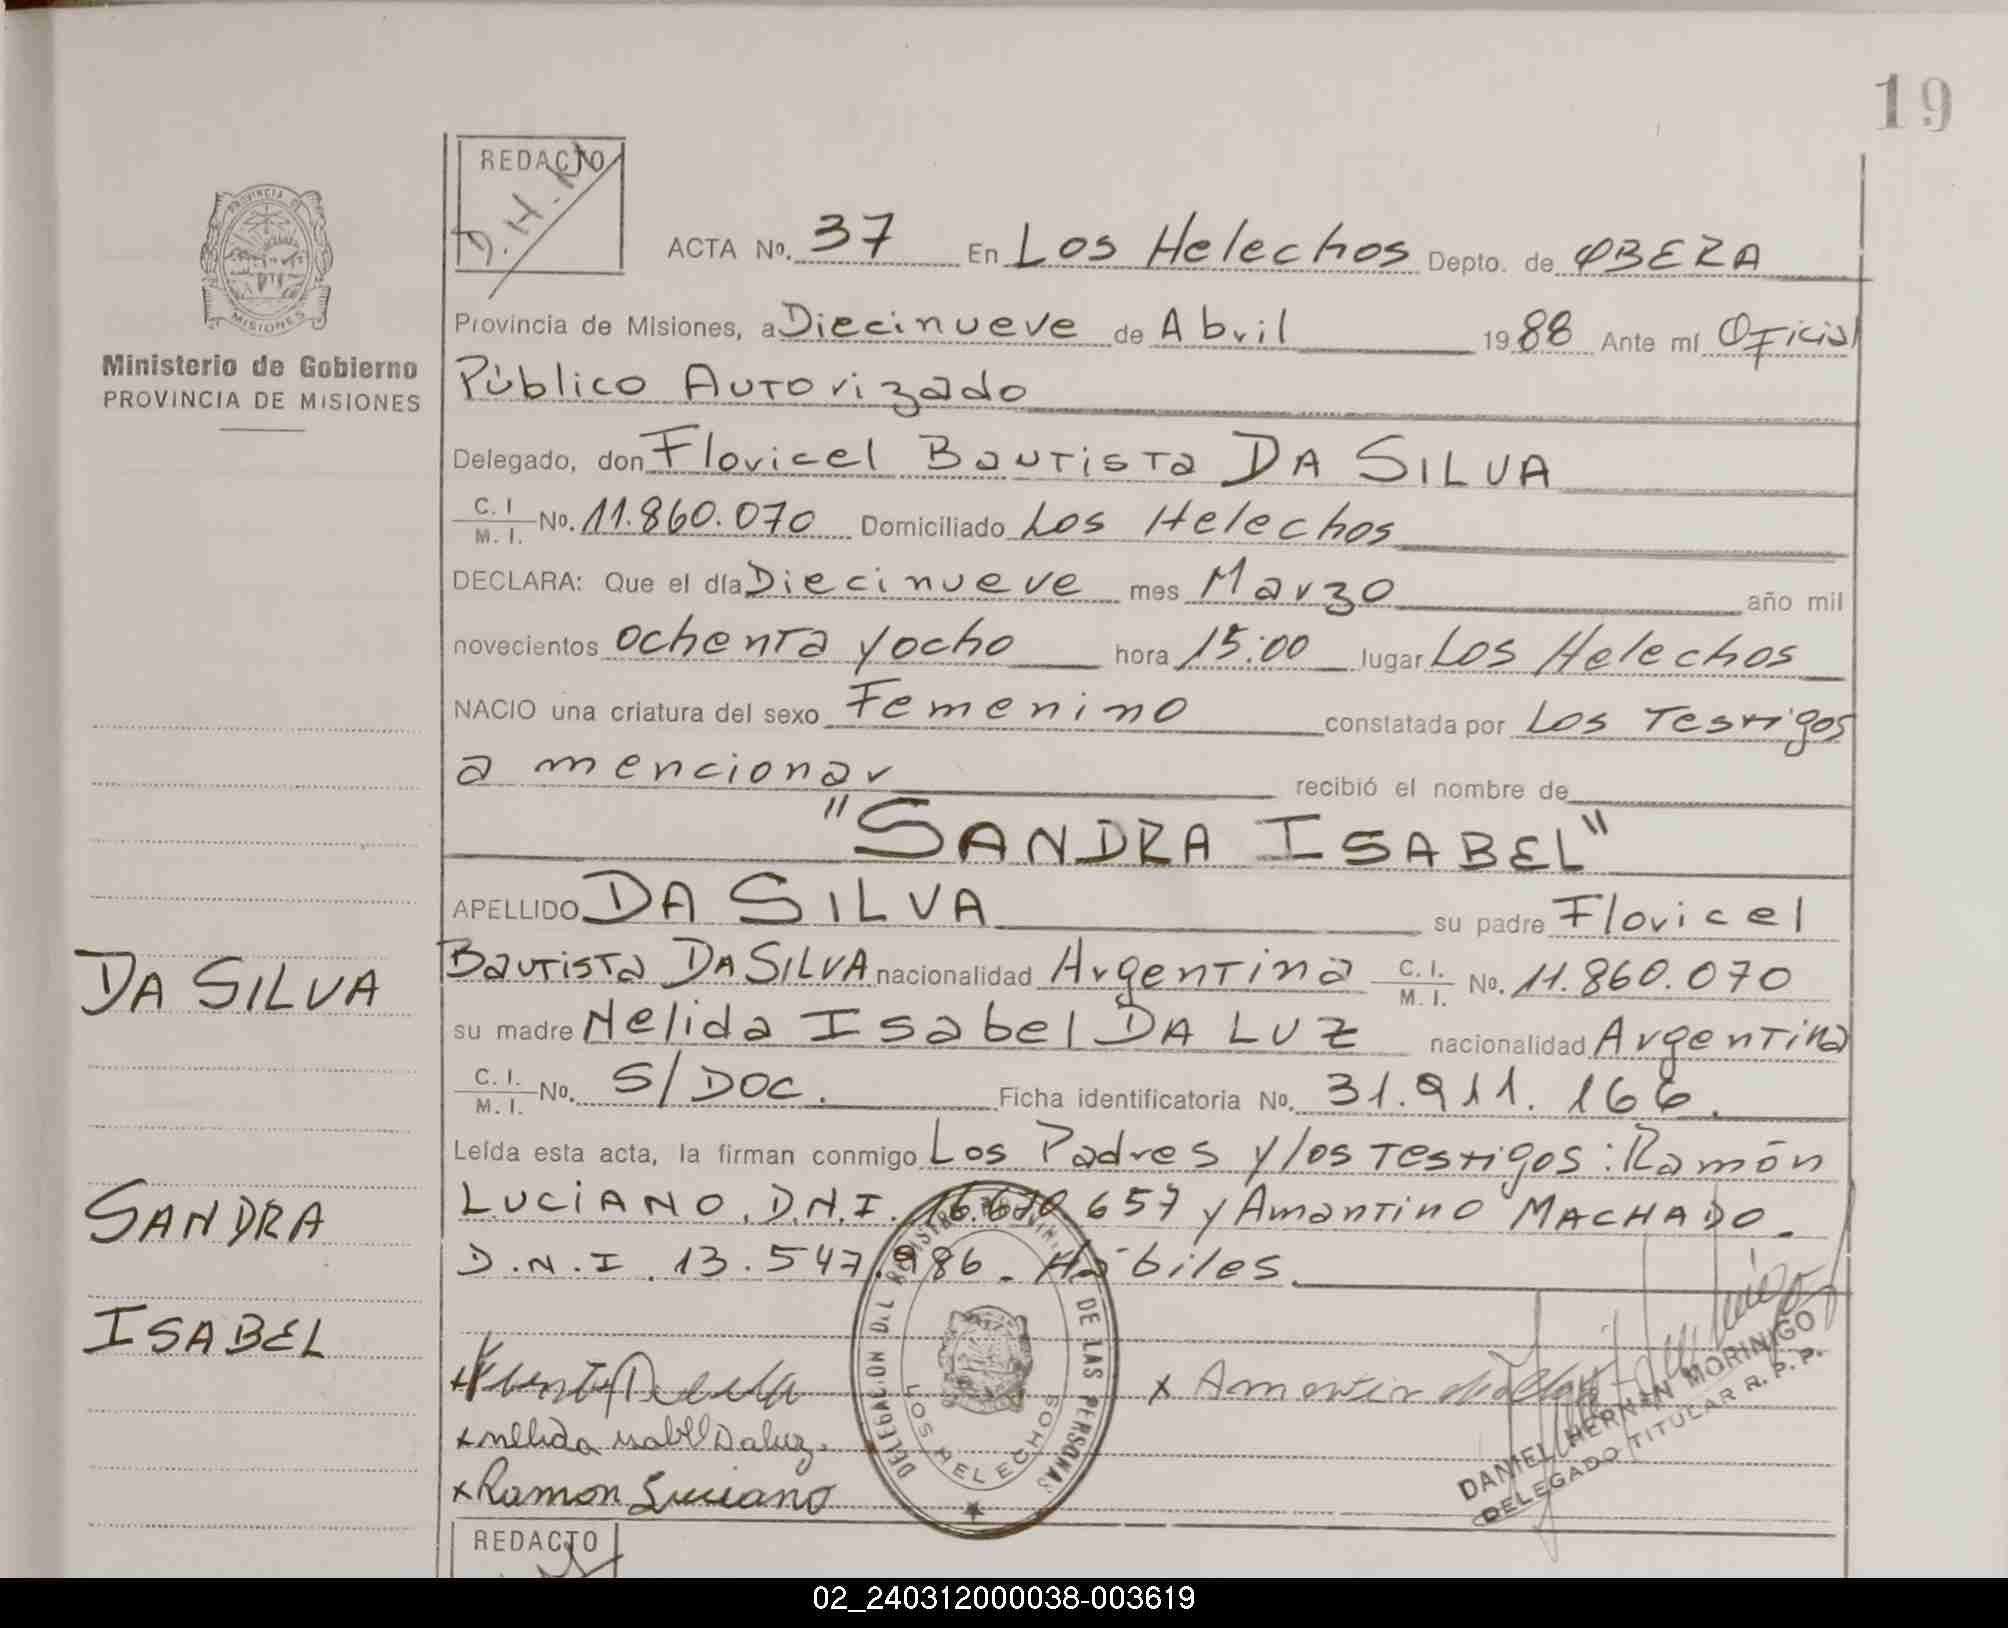 19
REDACTO
D.H.M
ACTA No. 37 En Los Helechos Depto. de OBERA
PROVINCIA DE
MISIONES
Ministerio de Gobierno
PROVINCIA DE MISIONES
Provincia de Misiones, a Diecinueve de Abril 1988 Ante mí Oficial
Público Autorizado
Delegado, don Flovicel Bautista DA SILVA
C.I./M.I. No. 11.860.070 Domiciliado Los Helechos
DECLARA: Que el día Diecinueve mes Marzo año mil
novecientos ochenta y ocho hora 15:00 lugar Los Helechos
NACIO una criatura del sexo Femenino constatada por Los Testigos
a mencionar recibió el nombre de
"SANDRA ISABEL"
APELLIDO DA SILVA su padre Flovicel
Bautista DA SILVA nacionalidad Argentina C.I./M.I. No. 11.860.070
su madre Nelida Isabel DA LUZ nacionalidad Argentina
C.I./M.I. No. S/DOC. Ficha identificatoria No. 31.911.166.
Leída esta acta, la firman conmigo Los Padres y los Testigos: Ramón
LUCIANO. D.N.I. 16.670.657 y Amantino MACHADO.
D.N.I. 13.547.986. Hábiles.
DA SILVA
SANDRA
ISABEL
x
x nelida isabel Daluz.
x Ramon Luciano
x Amantin
DELEGACION DEL REGISTRO PROVINC. DE LAS PERSONAS
LOS HELECHOS
DANIEL HERNAN MORINIGO
DELEGADO TITULAR R.P.P.
REDACTO
02_240312000038-003619